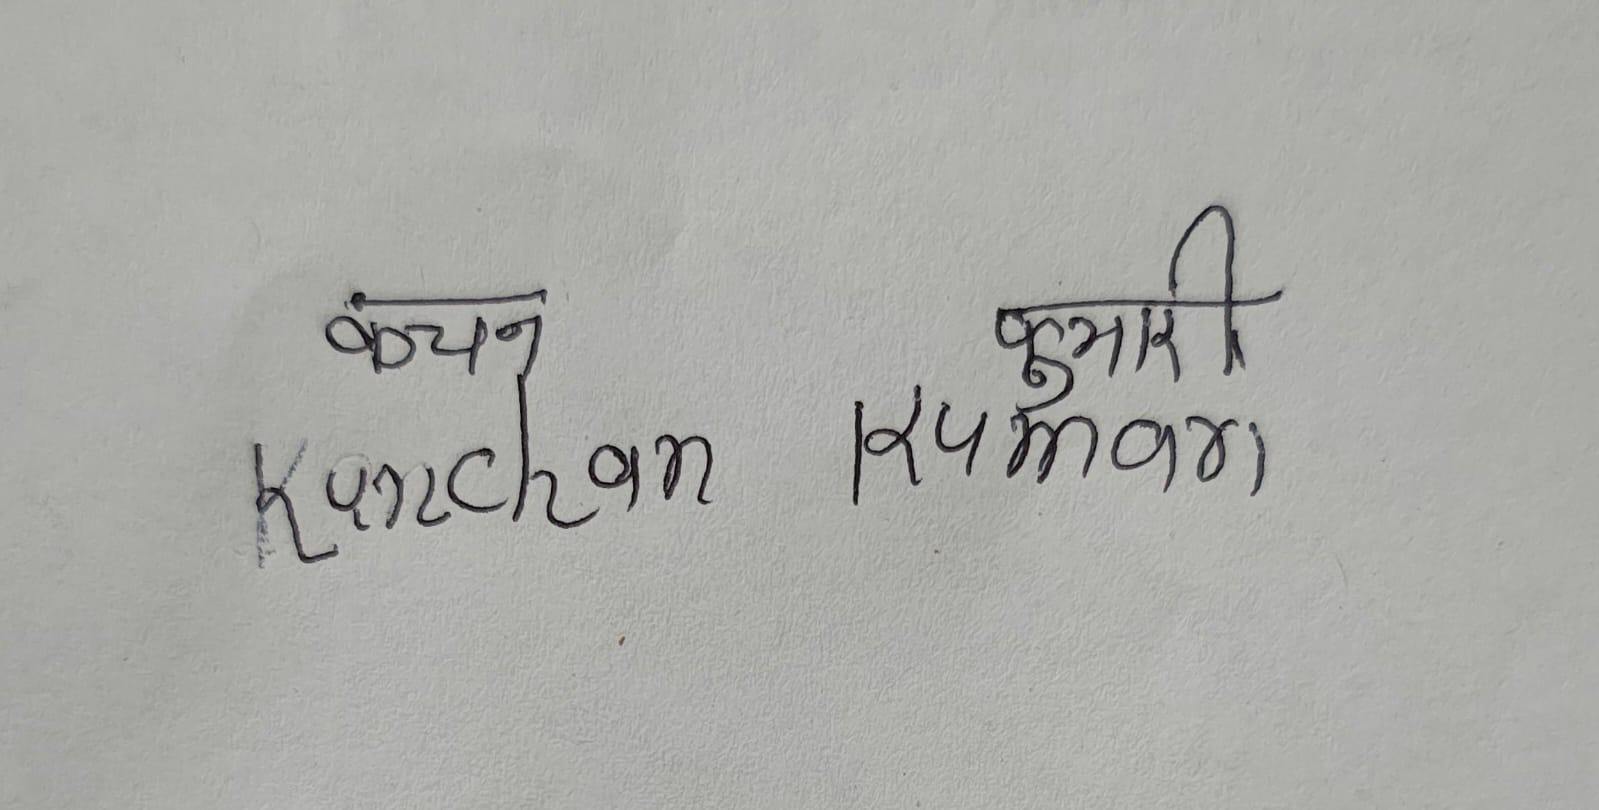 कंचन कुमारी
Kanchan Kumari